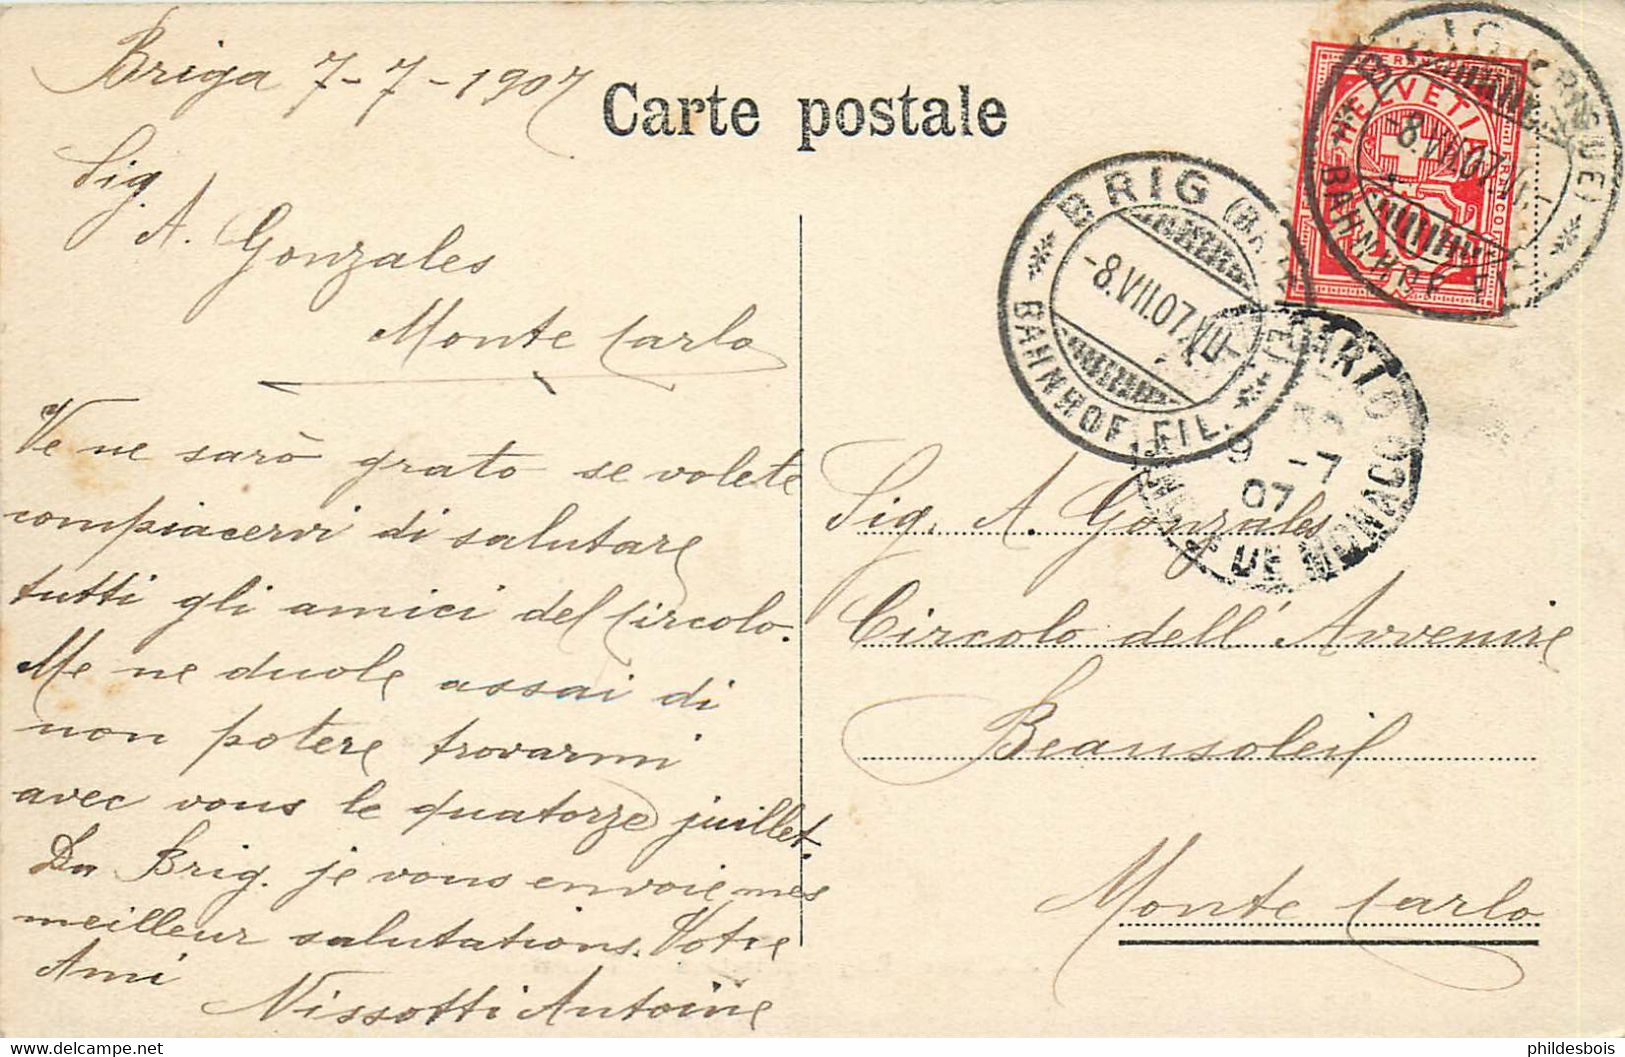 Briga 7-7-1907
Carte postale
Sig.
A. Gonzales
Monte Carlo
Ve ne sarò grato se volete
compiacervi di salutare
tutti gli amici del Circolo.
Me ne duole assai di
non potere trovarmi
avec vous le quatorze juillet.
Da Brig. je vous envoie mes
meilleur salutations. Votre
Ami
Nissotti Antoine
HELVETIA
-8.VII.07.VII
BAHNHOF
BRIG
-8.VII.07.VII
BAHNHOF. FIL.
CARLO
9 -7
07
DE MONACO
Sig. A. Gonzales
Circolo dell' Avvenire
Beausoleil
Monte Carlo
phildesbois